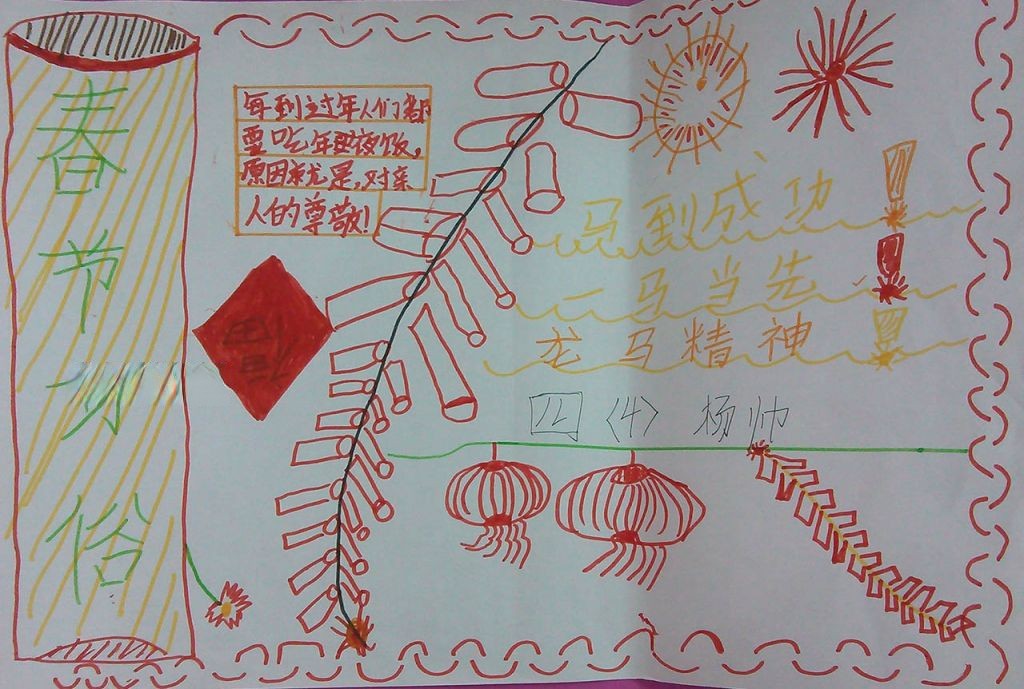 春节习俗
每到过年人们都
要吃年夜饭,
原因就是,对亲
人的尊敬!
福
马到成功
一马当先
龙马精神
四〈4〉 杨帅